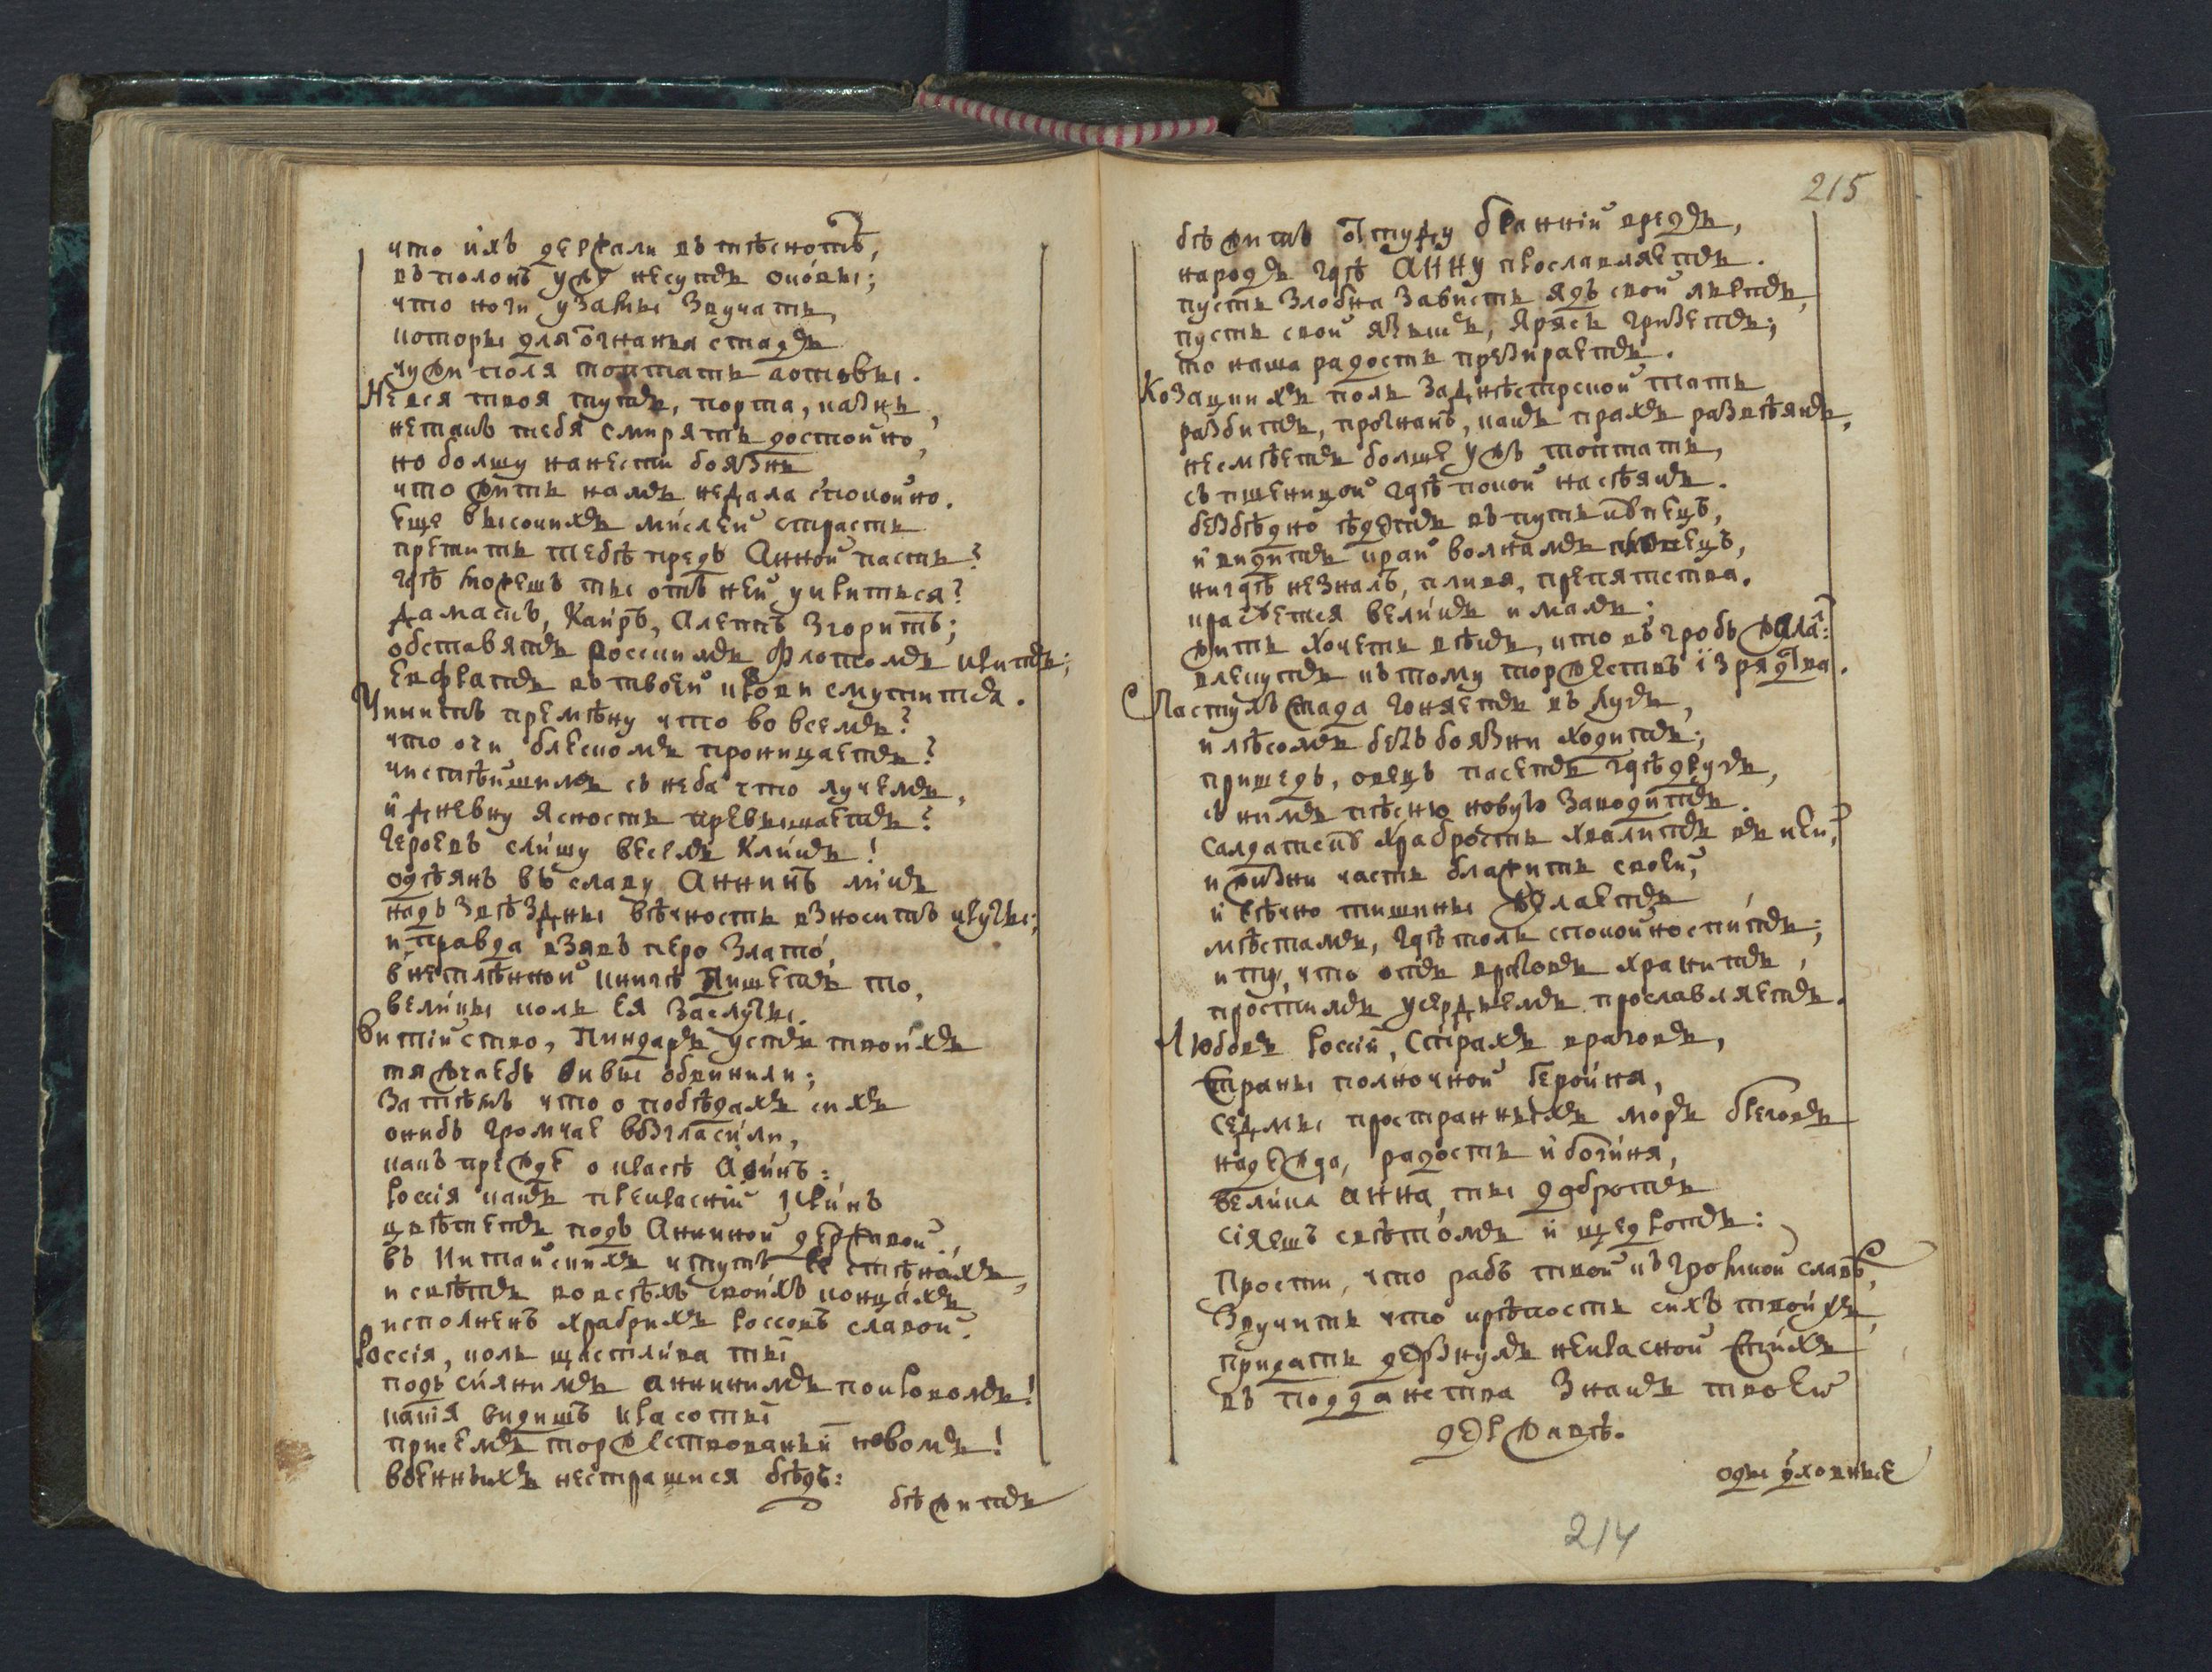 что ихъ держали въ тѣснотѣ,
въ полонъ уже несутъ оковы;
что ноги узамы звучатъ,
которы для отгнанья стадъ
чужи поля топтать готовы.
Не вся твоя тутъ, порта, казнь,
не такъ тебя смирять достойно,
но большу нанести боязнь
что жить намъ не дала спокойно.
еще высокихъ мыслей страсть
претитъ тебѣ предъ Анной пасть?
гдѣ можешъ ты отъ ней укрыться?
дамаскъ, Каиръ, Алеппъ згоритъ;
обставятъ россимъ флотомъ критъ;
евфратъ въ твоей крови смутится.
Чинитъ премѣну что во всемъ?
что очи блескомъ проницаетъ?
чистѣйшимъ съ неба что лучемъ,
и дневну ясность превышаетъ?
героевъ слышу веселъ кликъ!
одѣянъ въ славу Аннинъ ликъ
надъ звѣздны вѣчность взноситъ круги;
и правда взявъ перо злато,
в нетлѣнной книгѣ пишетъ то,
велики коль ея заслуги.
Витійство, Пиндаръ устъ твоихъ
тяжчаебъ Ѳивы обвинили;
затѣмъ что о побѣдахъ сихъ
онибъ громчае возгласили,
какъ прежде о красѣ Аѳинъ:
россія какъ прекрасній кринъ
цвѣтетъ подъ Анниной державой.
въ Китайскихъ чтутъ ее стѣнахъ,
и свѣтъ во всѣхъ своихъ концахъ
исполненъ храбрихъ россовъ славой.
Россія, коль щастлива ты
подъ сияннимъ анниннимъ покровомъ!
какія видишъ красоты
при семъ торжествованьи новомъ!
военныхъ не страшися бѣдъ:
бѣжитъ
215
бѣжитъ оттуду бранній вредъ,
народъ гдѣ Анну прославляетъ.
пусть злобна зависть ядъ свой льетъ,
пусть свой языкъ, ярясь грызетъ;
то наша радость презираетъ.
Козацкихъ поль заднѣстрской тать
разбитъ, прогнанъ, какъ прахъ развѣянъ,
не смѣетъ больше ужъ топтать,
съ пшеницой гдѣ покой насѣянъ.
безбѣдно ѣдетъ въ путь купецъ,
и видитъ край волнамъ пловецъ,
нигдѣ не зналъ, плывя, препятства.
красуется великъ и малъ;
жить хочетъ вѣкъ, кто въ гробъ желалъ:
влекутъ къ тому торжествъ изрядства.
Пастухъ стада гоняетъ въ лугъ,
и лѣсомъ безъ боязни ходитъ;
пришедъ, овецъ пасетъ гдѣ другъ,
съ нимъ пѣсню новую заводитъ.
солдатску храбрость хвалитъ въ ней,
и жизни часть блажитъ своей,
и вѣчно тишины желаетъ
мѣстамъ, гдѣ толь спокойно спитъ;
и ту, что отъ враговъ хранитъ,
простымъ усердьемъ прославляетъ.
Любовь россіи, Страхъ враговъ,
Страны полночной Героиня,
седмы пространныхъ моръ бреговъ
надежда, радость и богиня,
велика Анна, ты добротъ
сіяешъ свѣтомъ и щедротъ:
Прости, что рабъ твой къ громкой славѣ,
звучитъ что крѣпость силъ твоихъ,
придать дерзнулъ некрасной стихъ
въ подданства знакъ твоей
державѣ.
оды духовные
214